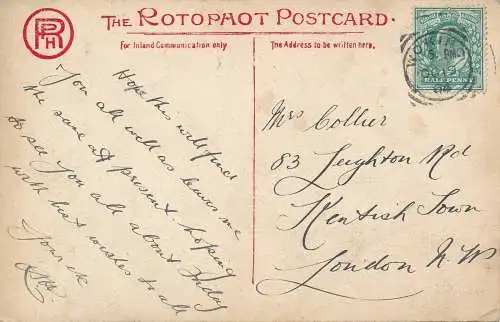 RPH
THE ROTOPHOT POSTCARD.
For Inland Communication only
The Address to be written here.
HALF PENNY
Hope this will find
You all well as leaves me
the same at present, hoping
to see you all about Friday
with best wishes to all
Yours &c
Mrs Collier
83 Leighton Rd
Kentish Town
London N.W